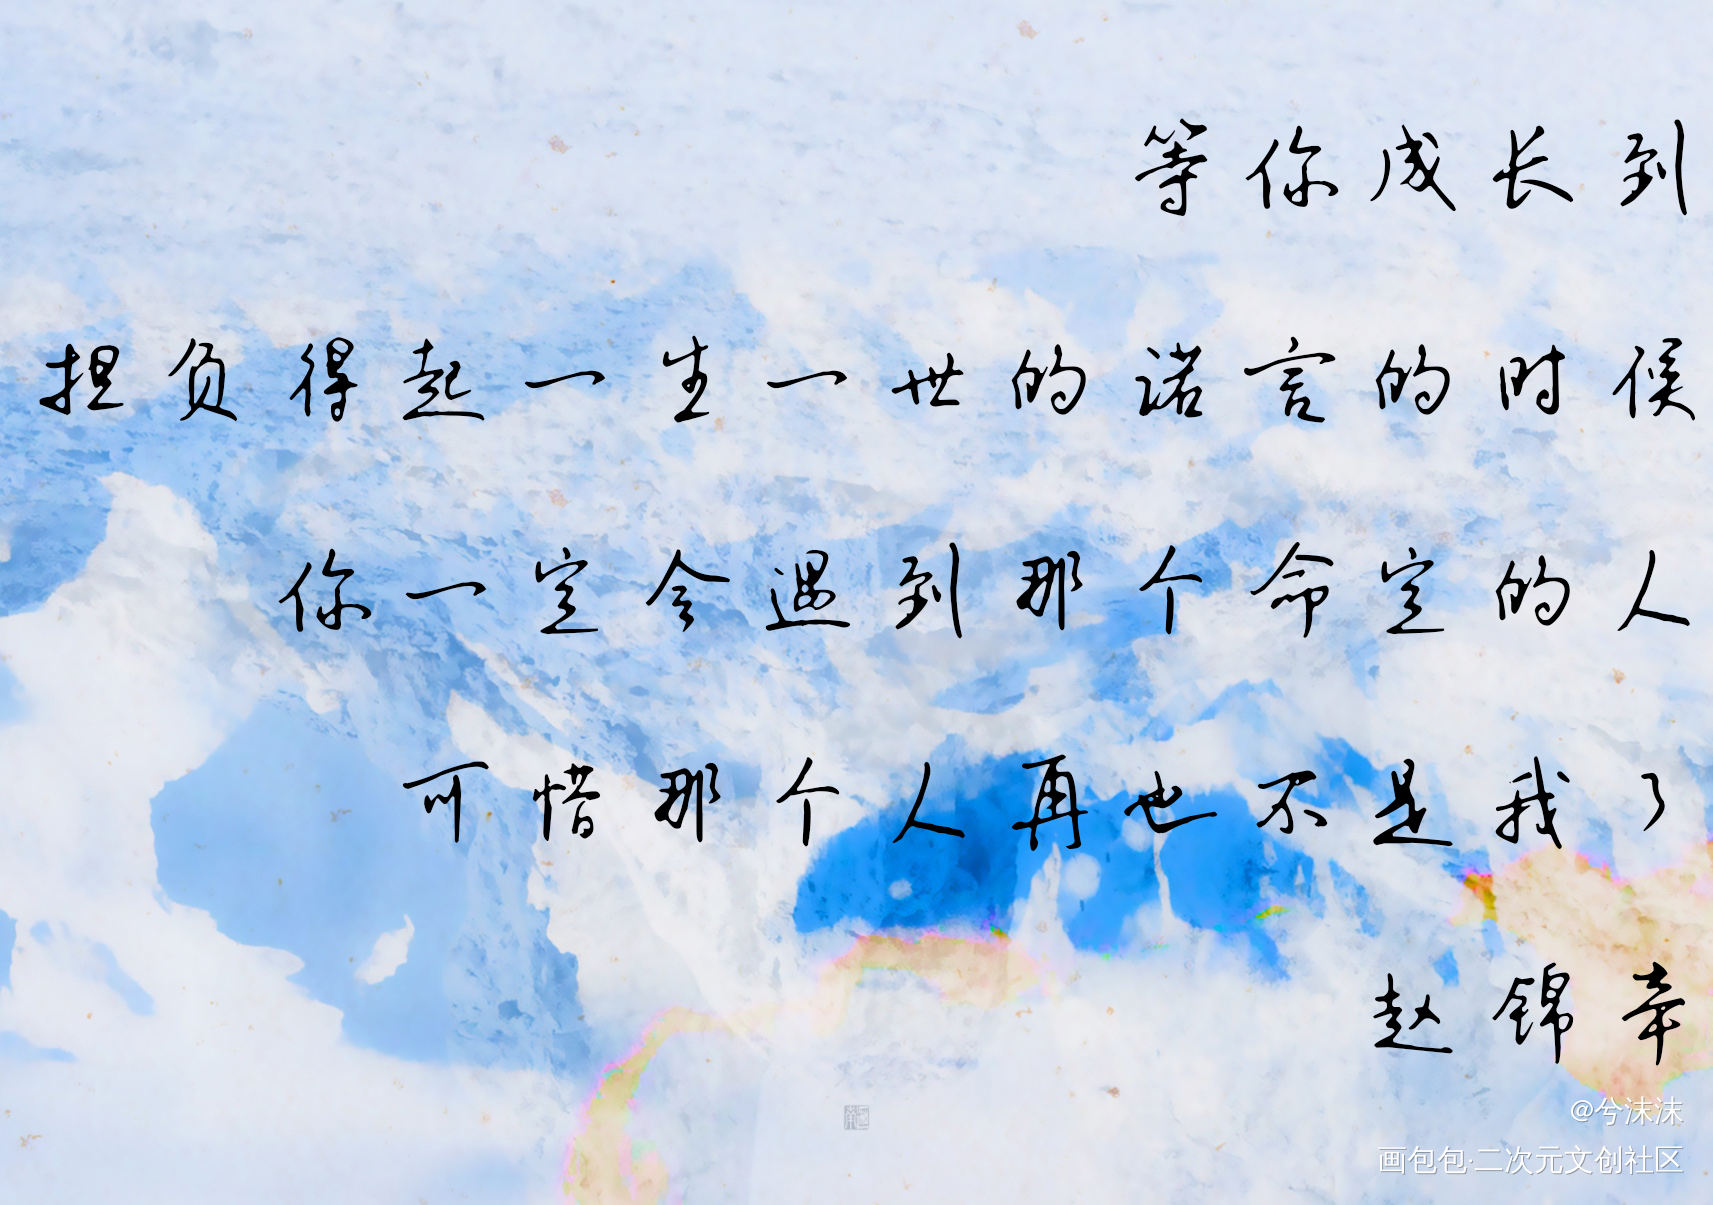 等你成长到
担负得起一生一世的诺言的时候
你一定会遇到那个命定的人
可惜那个人再也不是我了
赵锦辛
@兮沫沫
画包包·二次元文创社区